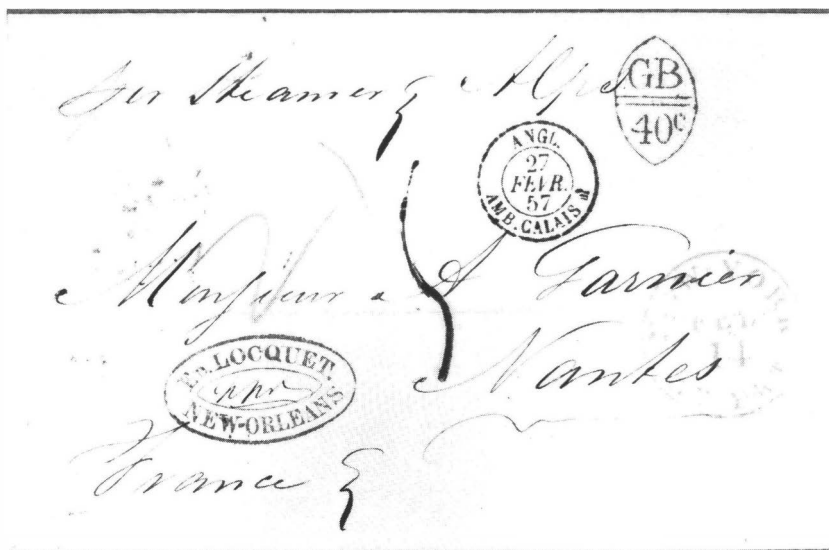 per Steamer Alps
GB
40c
ANGL.
27
FEVR.
57
AMB. CALAIS
Monsieur A Garnier
Nantes
ED. LOCQUET.
NEW-ORLEANS
France